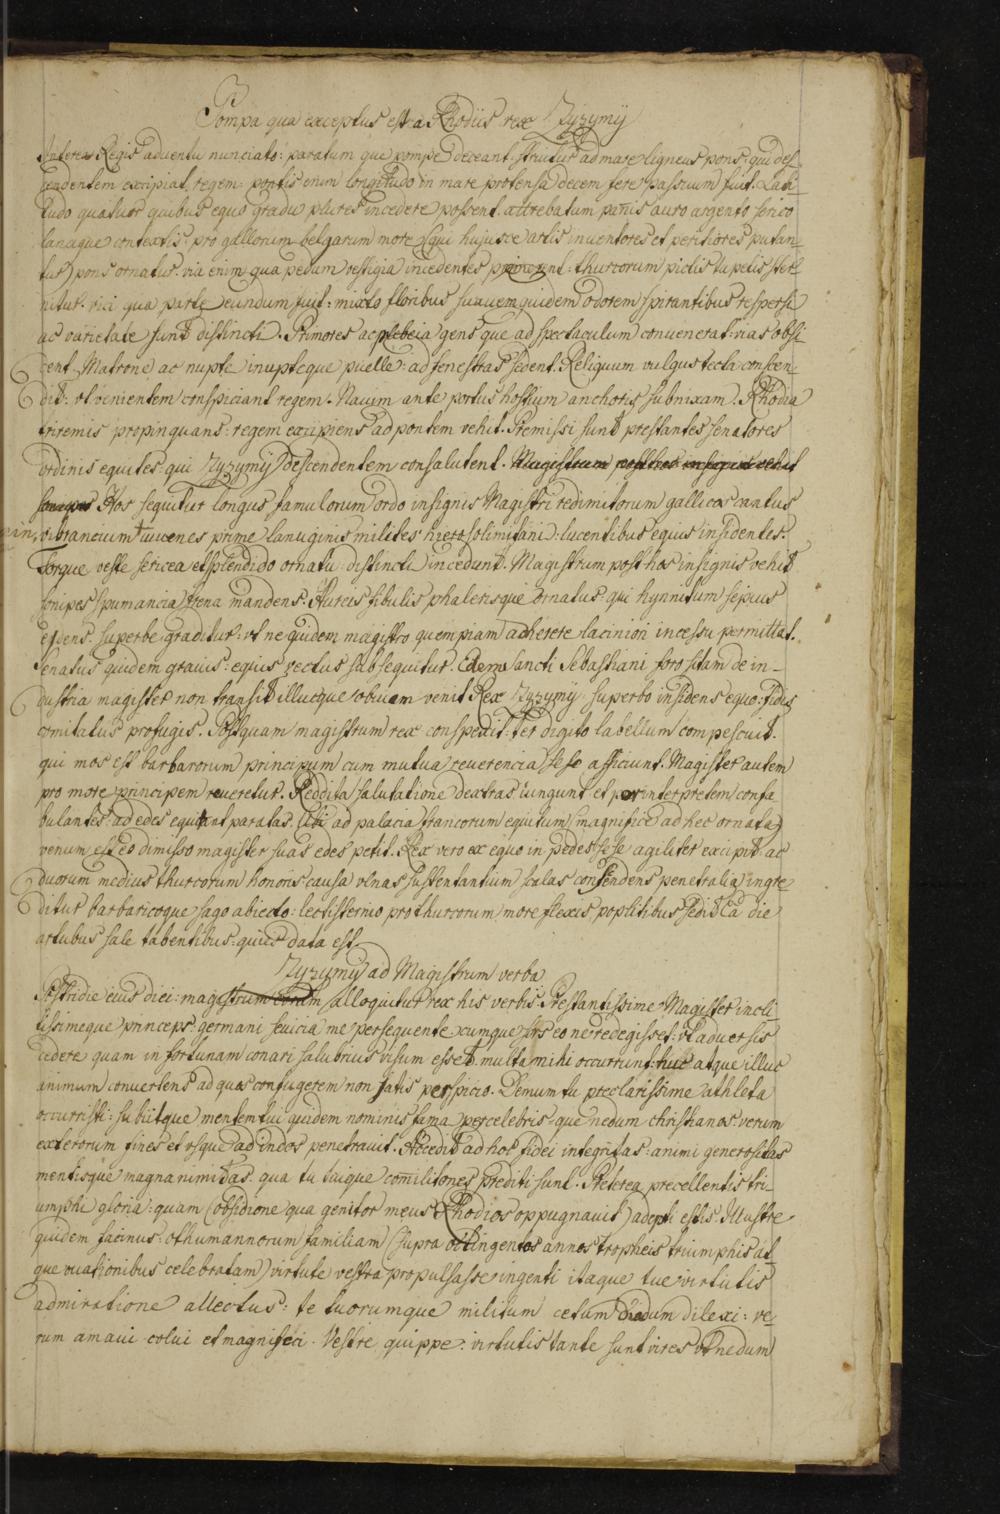 Pompa qua exceptus est a Rhodiis rex Zyzymÿ
Interea Regis adventu nunciato: paratum que pompe deceant. struitur ad mare ligneus pons. qui des-
cendentem excipiat regem: pontis enim longitudo in mare protensa decem fere passuum fuit. Lati-
tudo quatuor quibus equo gradu plures incedere possent. attrebatum panis auro argento serico
lanaque contextis: pro gallorum belgarum more (qui hujusce artis inventores et peritiores putan-
tur) pons ornatus. via enim qua pedum vestigia incedentes: thurcorum pictis tapetis ster-
nitur. vici qua parte eundum fuit: mixto floribus suavem quidem odorem spirantibus respersi
ac varietate sunt distincti. Primores ac plebeia gens que ad spectaculum convenerat: vias obsi-
dent. Matrone ac nupte inupteque puelle: ad fenestras sedent. Reliquum vulgus tecta conscen-
dit: vt venientem conspiciant regem. Navim ante portus hostium anchoris subnixam. Rhodia
triremis propinquans: regem excipiens ad pontem vehit. Premissi sunt prestantes senatores
ordinis equites. qui Zyzymÿ descendentem consalutent. Magistrum post hos insignis vehit
sonipes Hos sequitur longus famulorum ordo insignis Magistri redimitorum gallicos cantus
vibrancium iuvenes prime lanuginis milites hierosolimitani: lucentibus equis insidentes:
Torque veste sericea et splendido ornatu: distincti incedunt. Magistrum post hos insignis vehit
sonipes spumancia frena mandens. Aureis fibulis phalerisque ornatus qui hynnitum sepius
egens. superbe graditur: vt ne quidem magistro quempiam adherere lacinioi incessu permittat.
Senatus quidem gravis: equis vectus subsequitur. Edem sancti Sebastiani foro sitam de in-
dustria magister non transit illucque obuiam venit Rex Zyzymÿ. superbo insidens equo: fidis
comitatus profugis. Postquam magistrum rex conspexit: ter digito labellum compescuit.
qui mos est barbarorum principum cum mutua reverencia sese afficiunt. Magister autem
pro more principem reveretur. Reddita salutatione dextras iungunt et per interpretem confa-
bulantes: ad edes equitant paratas. Ubi ad palacia francorum equitum (magnifice ad hec ornata)
venum est eo dimisso magister suas edes petit. Rex vero ex equo in pedes sese agiliter excipit: ac
duorum medius thurcorum honoris causa vlnas sustentantium scalas conscendens penetralia ingre-
ditur barbaricoque sago abiecto: lectisternio pro thurcorum more flexis poplitibus sedit Ea die
artubus sale tabentibus: quies data est.
Zyzymÿ ad Magistrum verba
Postridie eius diei: magistrum coram alloquitur rex his verbis. Prestantissime Magister incli-
tissimeque princeps. germani seuicia me persequente. cumque sors eo ne redegisset: vt aduersis
cedere quam in fortunam conari salubrius visum esset. multa mihi occurrunt: huc atque illuc
animum convertens ad quos confugerem non satis perspicio. Demum tu preclarissime athleta
occurristi: subiitque mentem tui quidem nominis fama percelebris: que nedum christianos verum
exterorum fines et vsque ad indos penetravit. Accedit ad hoc fidei integritas: animi generositas
mentisque magnanimitas. qua tu tuique comilitones prediti sunt. Preterea precellentis tri-
umphi gloria: quam (obsidione qua genitor meus Rhodios oppugnavit) adepti estis. Illustre
quidem facinus. othumannorum familiam (supra octingentos annos tropheis triumphis at-
que ovationibus celebratam) virtute vestra propulsasse ingenti itaque tue virtutis
admiratione allectus: te tuorumque militum cetum diudum dilexi: ve-
rum amavi colui et magnifeci. Vestre quippe: virtutis tante sunt vires vt nedum